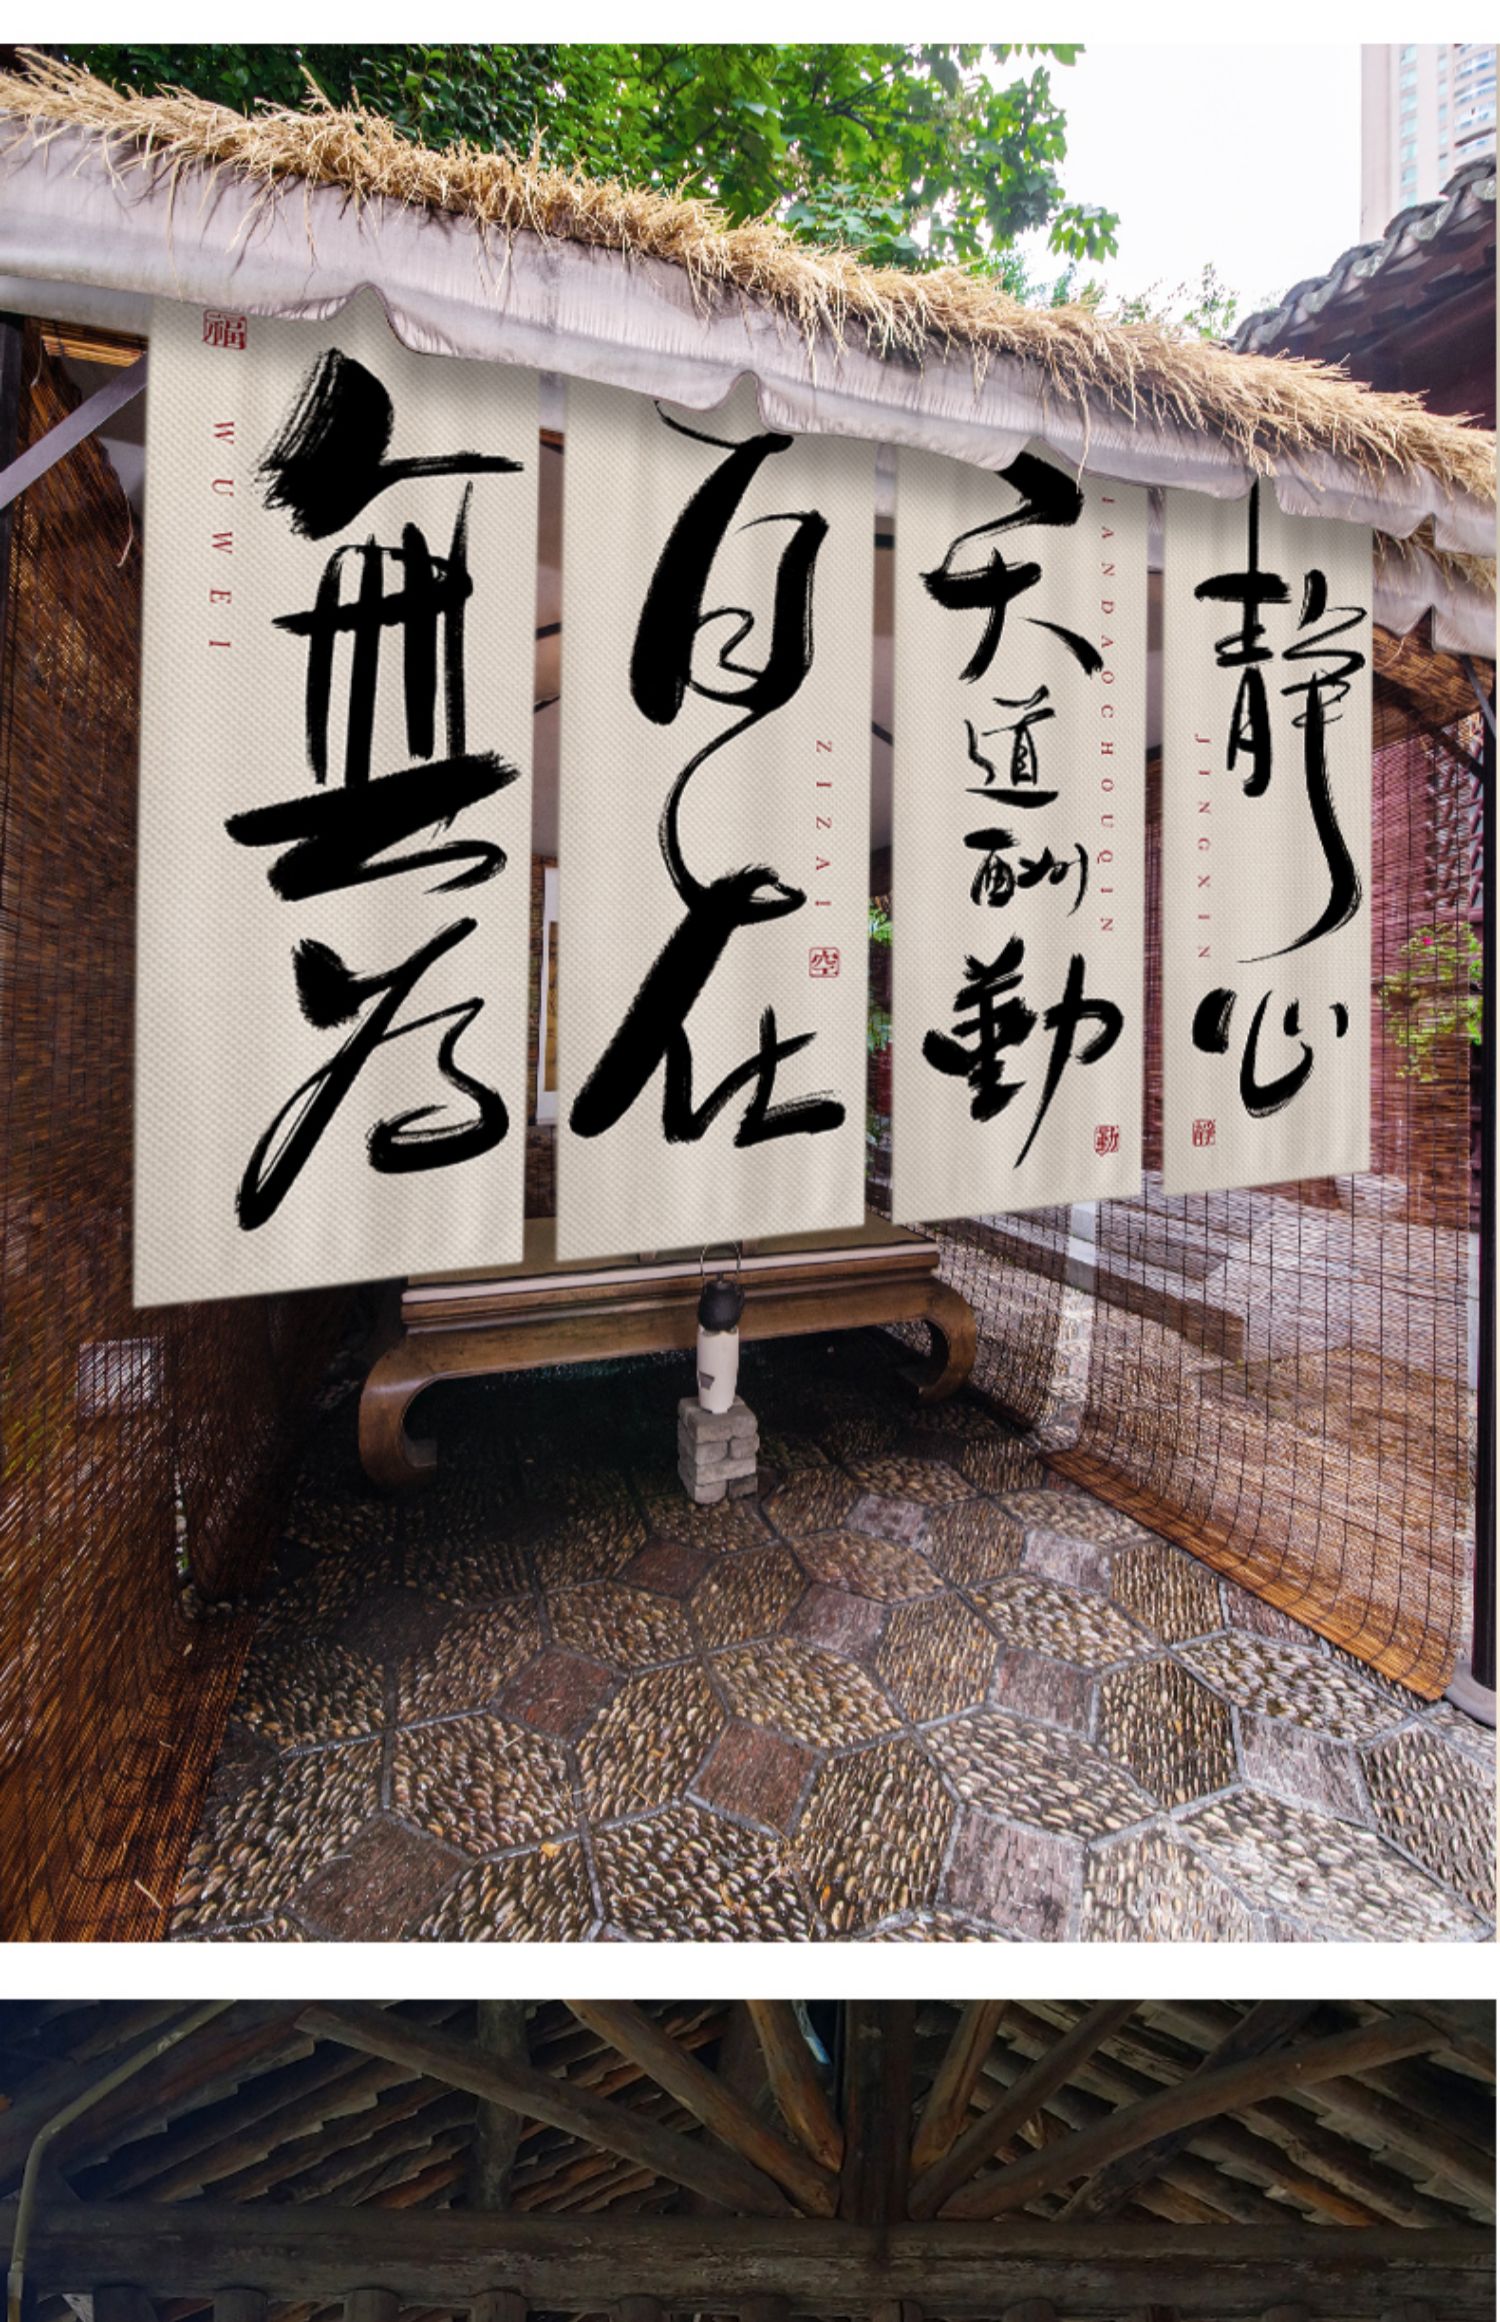 福
WUWEI
無為
自在
ZIZAI
空
天道酬勤
IANDAOCHOUQIN
勤
靜心
JINGXIN
靜